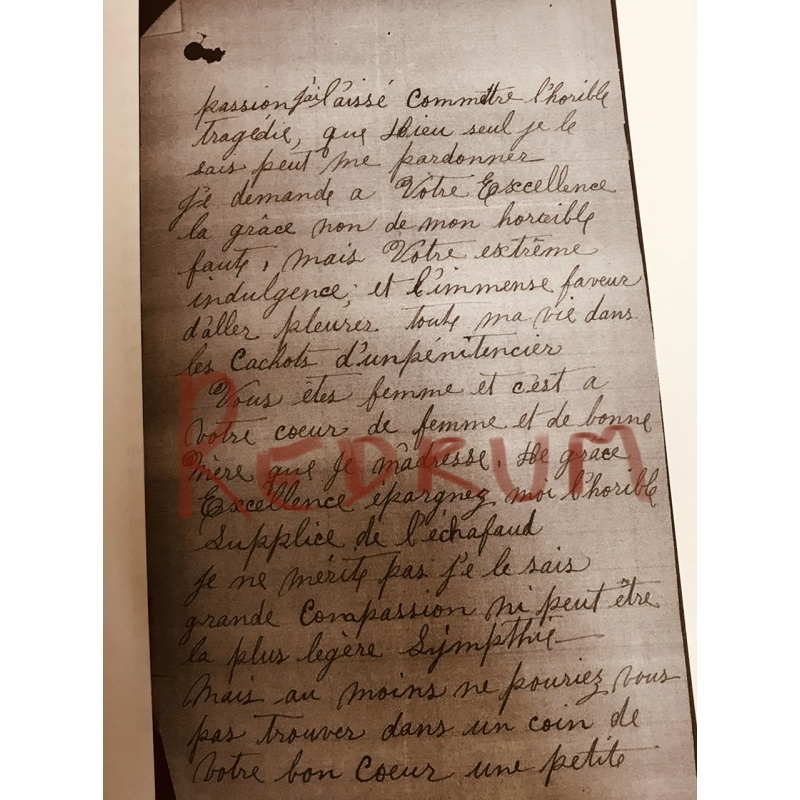 passion j'ai laissé commettre l'horible
tragédie, que Dieu seul je le
sais peut me pardonner
je demande a Votre Excellence
la grâce non de mon horreible
faute, mais Votre extrême
indulgence; et l'immense faveur
d'aller pleurer toute ma vie dans
les Cachots d'un pénitencier
Vous êtes femme et c'est a
votre coeur de femme et de bonne
mère que je m'adresse. De grace
Excellence épargnez moi l'horible
Supplice de l'échafaud
je ne mérite pas je le sais
grande Compassion ni peut être
la plus légère Sÿmpthie
Mais au moins ne pouriez vous
pas trouver dans un coin de
votre bon Coeur une petite
REDRUM